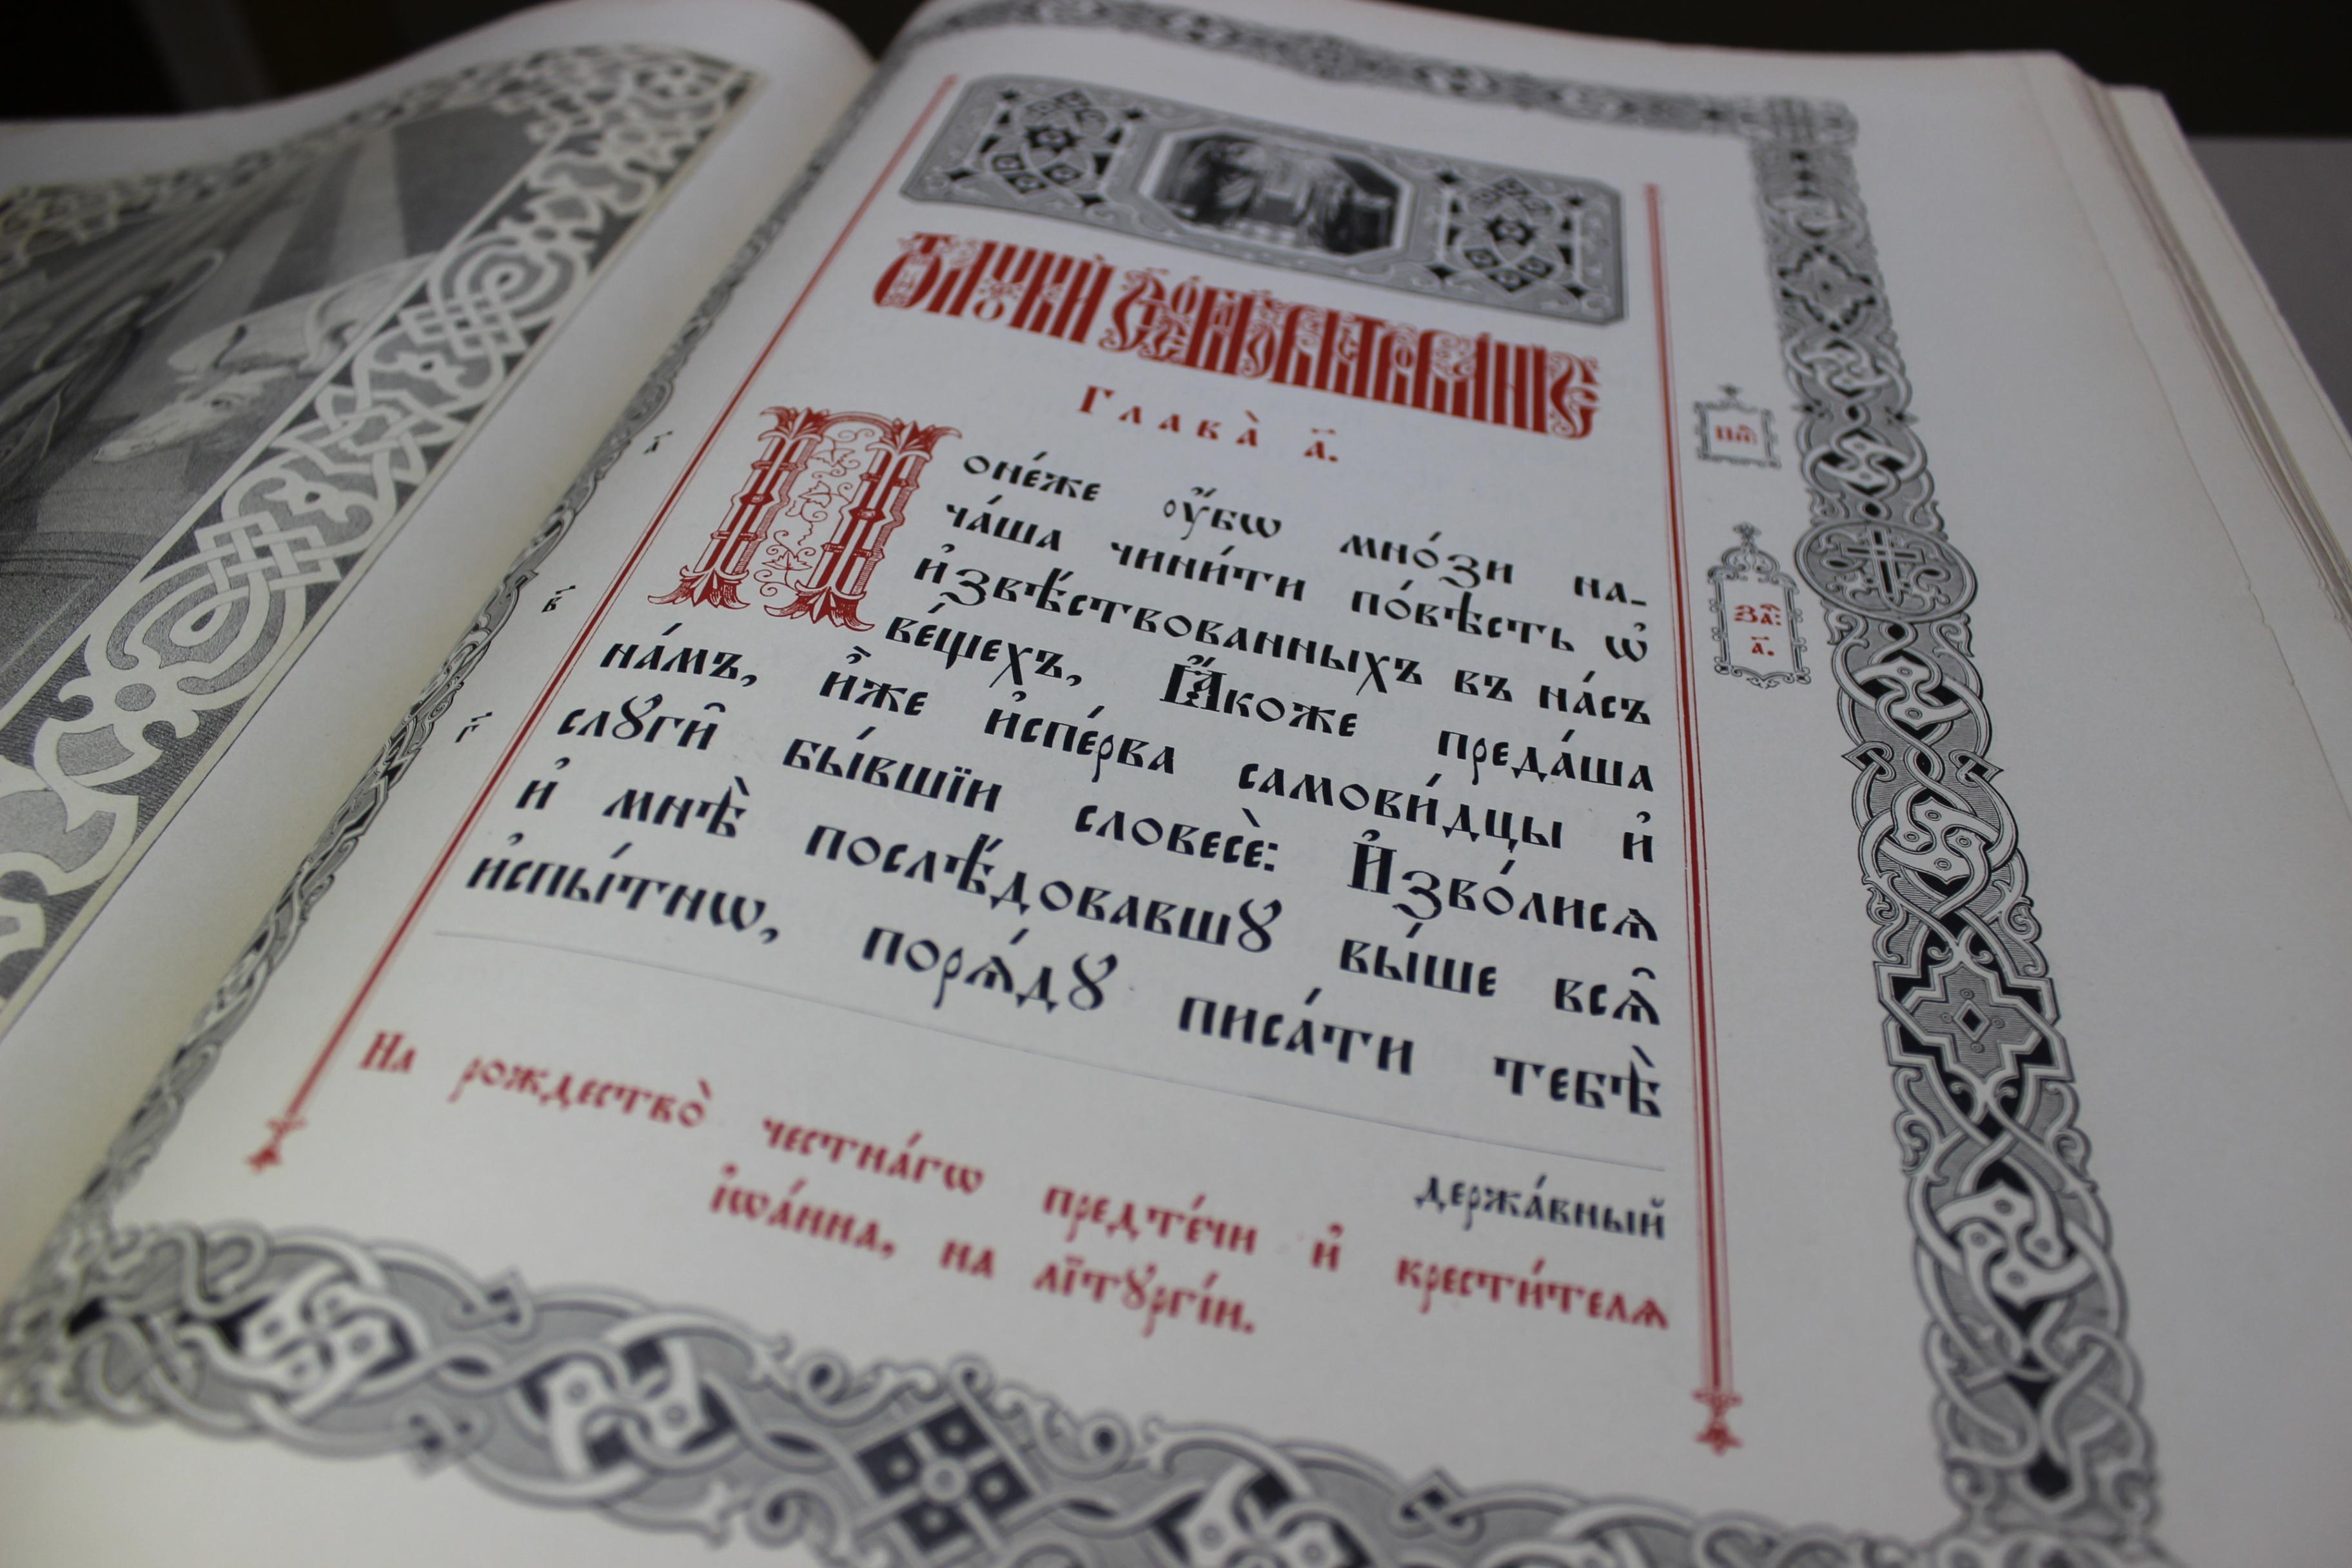 Ѿ лꙋкѝ ст҃о́е бл҃говѣствова́нїе
Глава̀ а҃.
Поне́же ᲂу҆́бѡ мно́зи на-
ча́ша чини́ти по́вѣсть ѡ҆
и҆звѣ́ствованныхъ въ на́съ
ве́щехъ, Ꙗ҆́коже преда́ша
на́мъ, и҆̀же и҆спе́рва самови́дцы и҆
слꙋги̑ бы́вшїи словесѐ: И҆зво́лисѧ
и҆ мнѣ̀ послѣ́довавшꙋ вы́ше всѧ̑
и҆спы́тнѡ, порѧ́дꙋ писа́ти тебѣ̀
держа́вный
На рождество̀ честна́гѡ предте́чи и҆ крести́телѧ
і҆ѡа́нна, на лїтꙋргі́и.
а҃
в҃
г҃
За҄:
а҃.